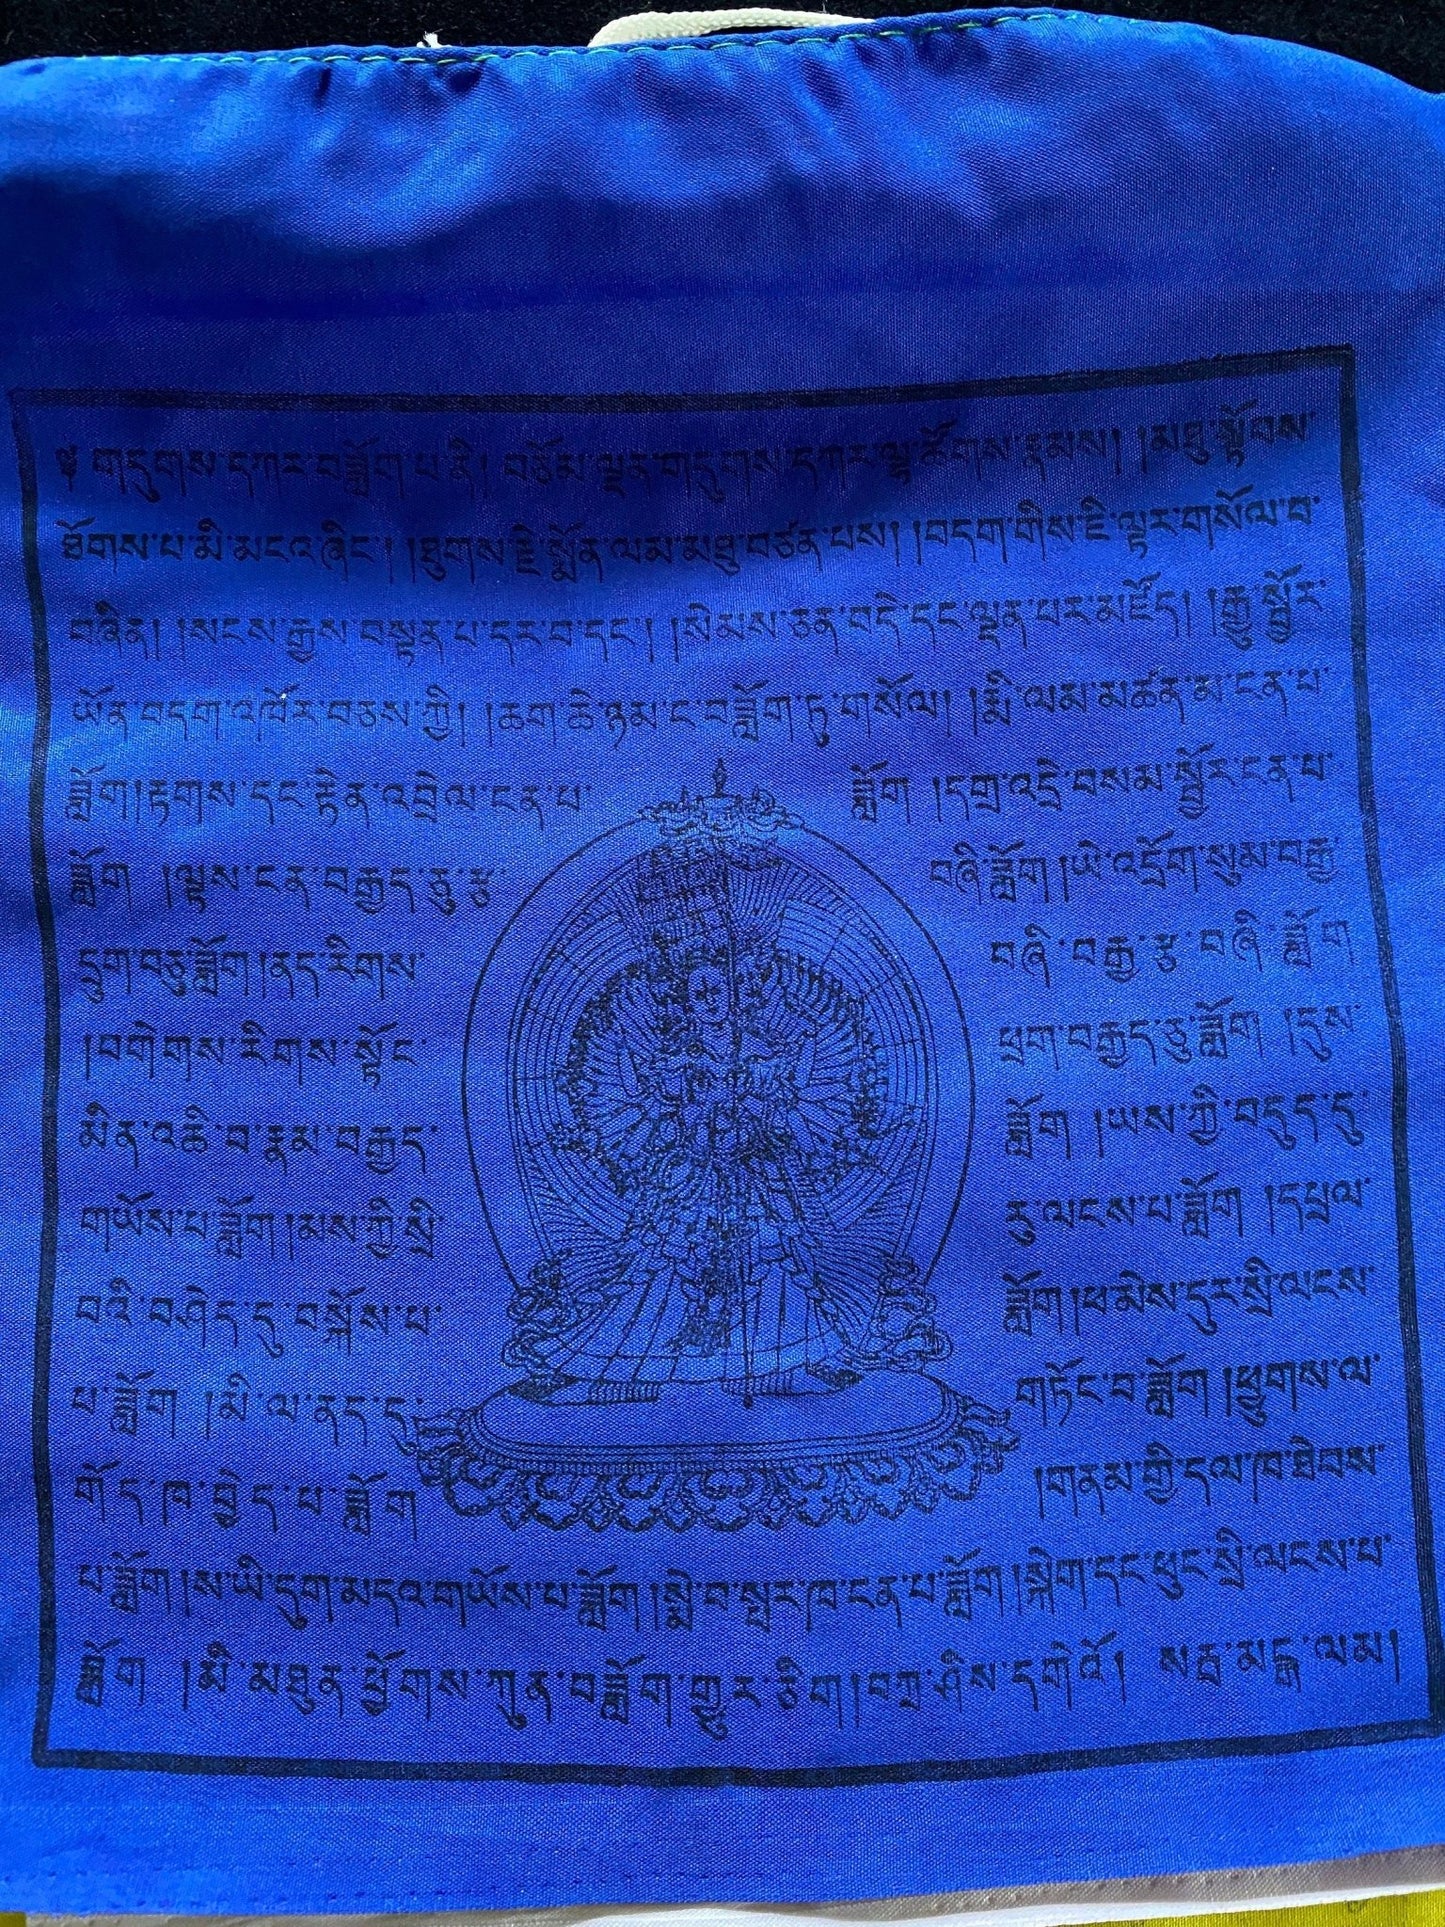 ༄ གདུགས་དཀར་བཟློག་པ་ནི། བཅོམ་ལྡར་གདུགས་དཀར་ལྷ་ཚོགས་རྣམས། །མཐུ་སྟོབས་
ཐོགས་པ་མི་མངའ་ཞིང་། །ཐུགས་རྗེ་སྨོན་ལམ་མཐུ་བཙན་པས། །བདག་གིས་ཇི་ལྟར་གསོལ་བ་
བཞིན། །སངས་རྒྱས་བསྟན་པ་དར་བ་དང་། །སེམས་ཅན་བདེ་དང་ལྡན་པར་མཛོད། །རྒྱུ་སྦྱོར་
ཡོན་བདག་འཁོར་བཅས་ཀྱི། །ཆག་ཆེ་ཉམ་ང་བཟློག་ཏུ་གསོལ། །རྨི་ལམ་མཚན་མ་ངན་པ་
ཟློག །རྟགས་དང་རྟེན་འབྲེལ་ངན་པ་ ཟློག །དགྲ་འདྲེ་བསམ་སྦྱོར་ངན་པ་
ཟློག །ལྟས་ངན་བརྒྱད་ཅུ་རྩ་ བཞི་ཟློག །ཡེ་འདྲོག་སུམ་བརྒྱ་
དྲུག་བཅུ་ཟློག །ནད་རིགས་ བཞི་བརྒྱ་རྩ་བཞི་ཟློག
།བགེགས་རིགས་སྟོང་ ཕྲག་བརྒྱད་ཅུ་ཟློག །དུས་
མིན་འཆི་བ་རྣམ་བརྒྱད་ ཟློག །ཡས་ཀྱི་བདུད་དུ་
གཡོས་པ་ཟློག །མས་ཀྱི་སྲི་ རུ་ལངས་པ་ཟློག །དཔྲལ་
བའི་བཤེད་དུ་བསྐོས་པ་ ཟློག །ཕ་མེས་དུར་སྲི་ལངས་
པ་ཟློག །མི་ལ་ནད་ད་ གཏོང་བ་ཟློག །ཕྱུགས་ལ་
གོད་ཁ་བྱེད་པ་ཟློག །གནམ་གྱི་དལ་ཁ་ཐེབས་
པ་ཟློག །ས་ཡི་དུག་མདའ་གཡོས་པ་ཟློག །སྨེ་བ་སྤར་ཁ་ངན་པ་ཟློག །སྐེག་དང་ཕུང་སྲི་ལངས་པ་
ཟློག །མི་མཐུན་ཕྱོགས་ཀུན་བཟློག་གྱུར་ཅིག །བཀྲ་ཤིས་དགེའོ། སརྦ་མངྒ་ལམ།